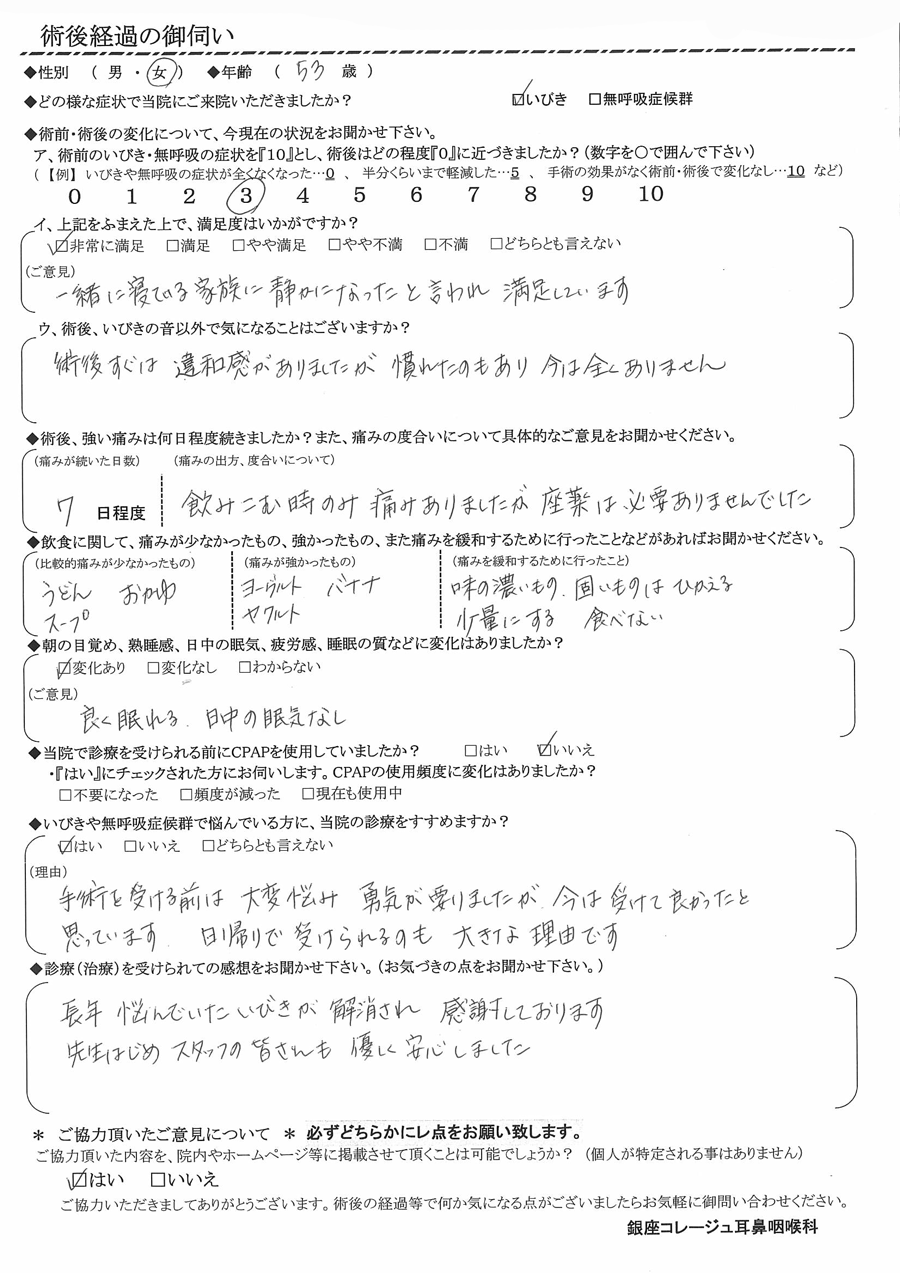 術後経過の御伺い
◆性別 ( 男 ・ 女 ) ◆年齢 ( 53 歳 )
◆どの様な症状で当院にご来院いただきましたか? ☑いびき □無呼吸症候群
◆術前・術後の変化について、今現在の状況をお聞かせ下さい。
ア、術前のいびき・無呼吸の症状を『10』とし、術後はどの程度『0』に近づきましたか?(数字を○で囲んで下さい)
(【例】いびきや無呼吸の症状が全くなくなった…0 、 半分くらいまで軽減した…5 、 手術の効果がなく術前・術後で変化なし…10 など)
0 1 2 3 4 5 6 7 8 9 10
イ、上記をふまえた上で、満足度はいかがですか?
☑非常に満足 □満足 □やや満足 □やや不満 □不満 □どちらとも言えない
(ご意見)
一緒に寝ている家族に静かになったと言われ 満足しています
ウ、術後、いびきの音以外で気になることはございますか?
術後すぐは 違和感がありましたが 慣れたのもあり 今は全くありません
◆術後、強い痛みは何日程度続きましたか?また、痛みの度合いについて具体的なご意見をお聞かせください。
(痛みが続いた日数) (痛みの出方、度合いについて)
7 日程度 飲みこむ時のみ 痛みありましたが 座薬は必要ありませんでした
◆飲食に関して、痛みが少なかったもの、強かったもの、また痛みを緩和するために行ったことなどがあればお聞かせください。
(比較的痛みが少なかったもの) (痛みが強かったもの) (痛みを緩和するために行ったこと)
うどん おかゆ ヨーグルト バナナ 味の濃いもの、固いものは ひかえる
スープ ヤクルト 少量にする 食べない
◆朝の目覚め、熟睡感、日中の眠気、疲労感、睡眠の質などに変化はありましたか?
☑変化あり □変化なし □わからない
(ご意見)
良く眠れる、日中の眠気なし
◆当院で診療を受けられる前にCPAPを使用していましたか? □はい ☑いいえ
・『はい』にチェックされた方にお伺いします。CPAPの使用頻度に変化はありましたか?
□不要になった □頻度が減った □現在も使用中
◆いびきや無呼吸症候群で悩んでいる方に、当院の診療をすすめますか?
☑はい □いいえ □どちらとも言えない
(理由)
手術を受ける前は 大変悩み 勇気が要りましたが、今は受けて良かったと
思っています。 日帰りで受けられるのも 大きな理由です
◆診療(治療)を受けられての感想をお聞かせ下さい。(お気づきの点をお聞かせ下さい。)
長年 悩んでいたいびきが 解消され 感謝しております
先生はじめ スタッフの皆さんも 優しく安心しました
＊ ご協力頂いたご意見について ＊ 必ずどちらかにレ点をお願い致します。
ご協力頂いた内容を、院内やホームページ等に掲載させて頂くことは可能でしょうか? (個人が特定される事はありません)
☑はい □いいえ
ご協力いただきましてありがとうございます。術後の経過等で何か気になる点がございましたらお気軽に御問い合わせください。
銀座コレージュ耳鼻咽喉科